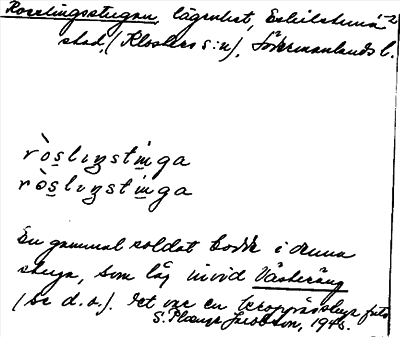 Roslingsstugan, lägenhet, Eskilstuna
stad, (Klosters s:n), Södermanlands l.
ròslıŋstı̲nga
ròslıŋstı̲nga
En gammal soldat bodde i denna
stuga, som låg invid Västeräng
(se d.o.). Det var en
S. Jacobson, 1943.